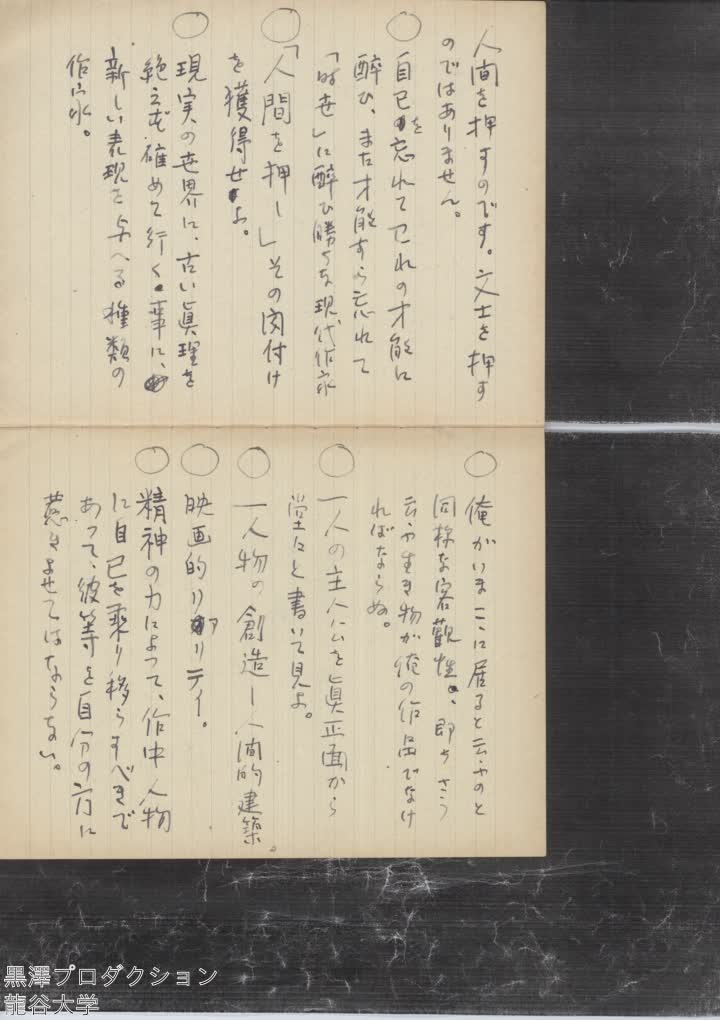 人間を押すのです。文士を押す
のではありません。
○ 自己を忘れて己れの才能に
酔ひ、また才能すら忘れて
「時世」に酔ひ勝ちな現代作家
○ 「人間を押し」その肉付け
を獲得せよ。
○ 現実の世界に、古い眞理を
絶えず確めて行く事に、
新しい表現を与へる種類の
作家。
○ 俺がいまここに居ると云ふのと
同様な客観性、即ちさう
云ふ生き物が俺の作品でなけ
ればならぬ。
○ 一人の主人公を眞正面から
堂々と書いて見よ。
○ 一人物の創造―人間的建築。
○ 映画的リアリティ。
○ 精神の力によって、作中人物
に自己を乗り移らすべきで
あって、彼等を自分の方に
惹きよせてはならない。
黒澤プロダクション
龍谷大学